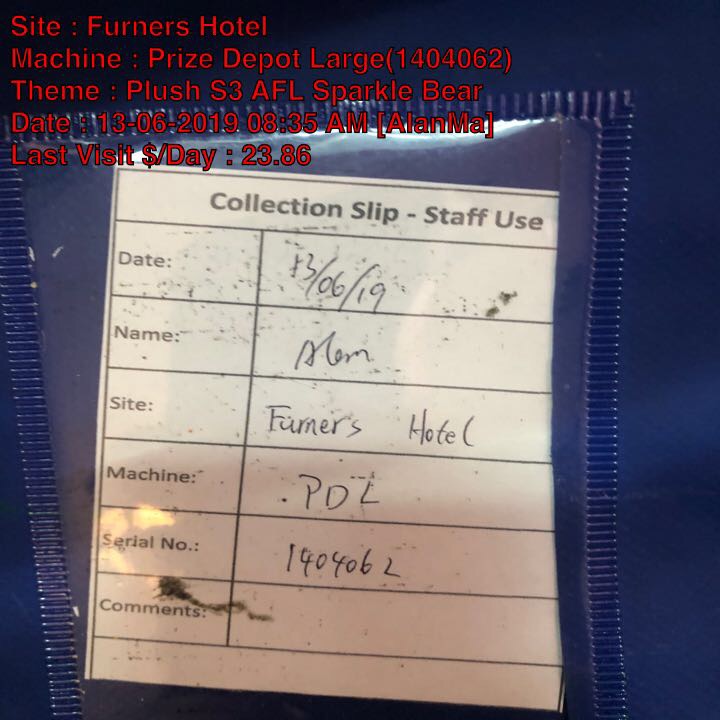 Site : Furners Hotel
Machine : Prize Depot Large(1404062)
Theme : Plush S3 AFL Sparkle Bear
Date : 13-06-2019 08:35 AM [AlanMa]
Last Visit $/Day : 23.86
Collection Slip - Staff Use
Date: 13/06/19
Name: Alan
Site: Furners Hotel
Machine: PDL
Serial No.: 1404062
Comments: